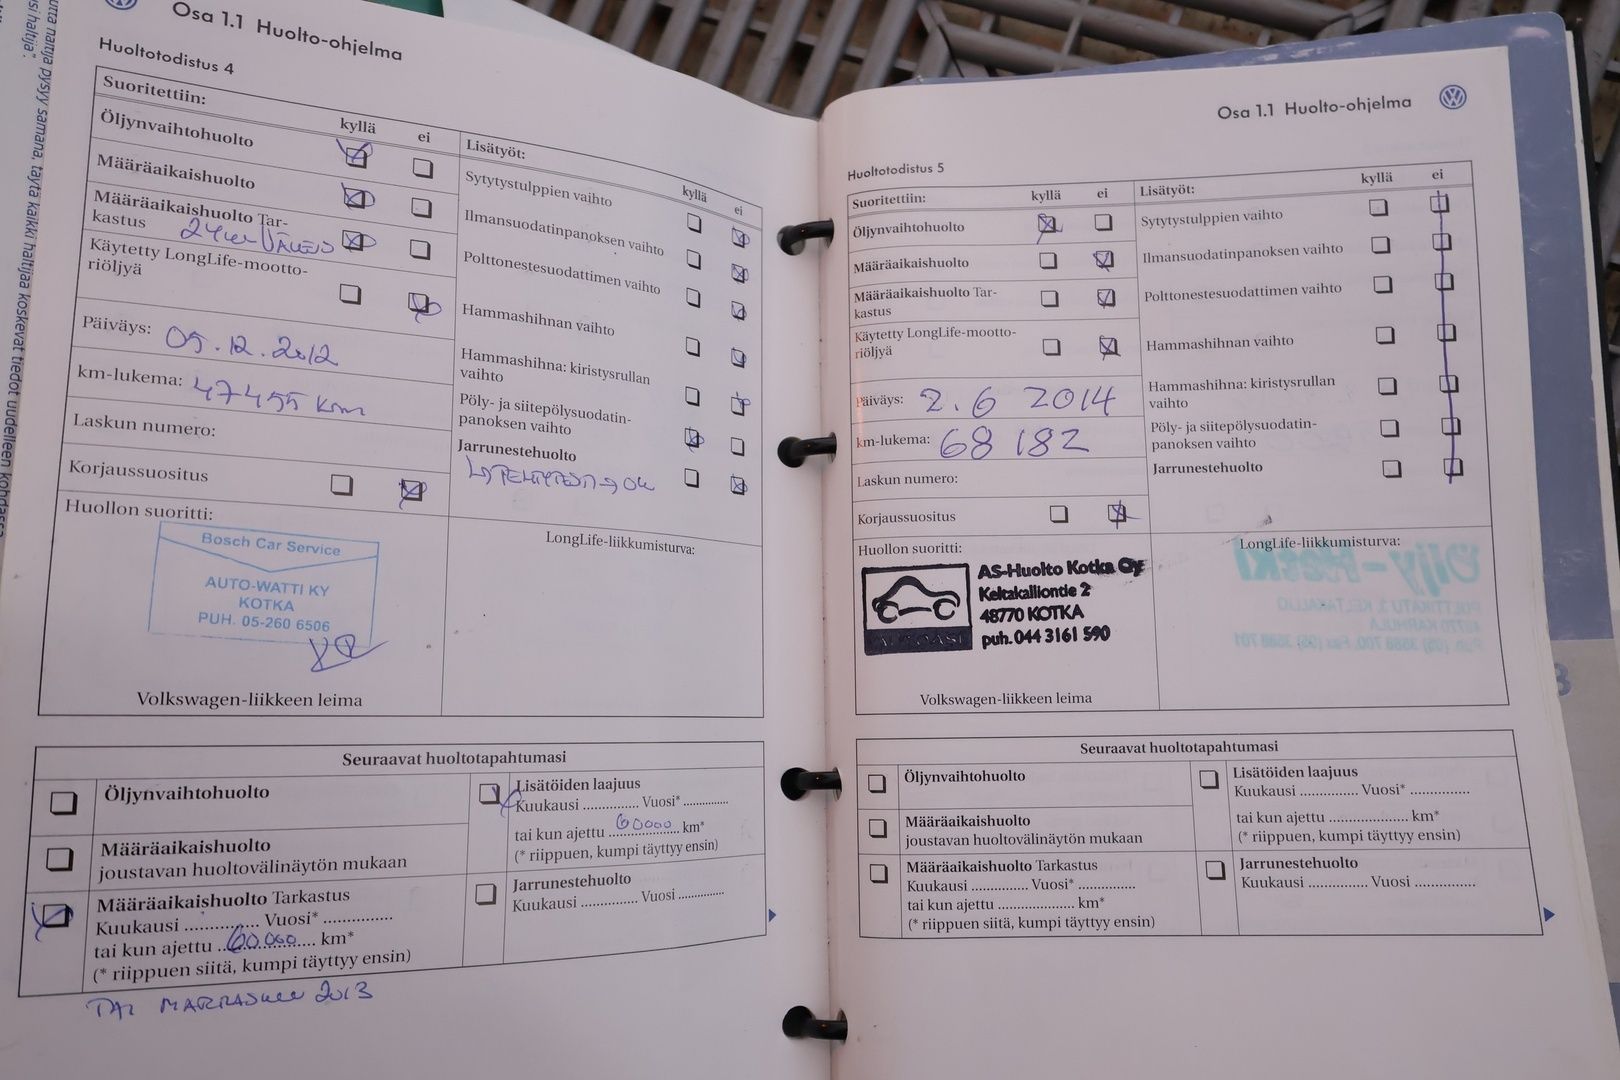 utta haltija pysyy samana, täytä kaikki haltijaa koskevat tiedot uudelleen kohdassa
usi haltija".
Osa 1.1 Huolto-ohjelma
Huoltotodistus 4
Suoritettiin:
kyllä ei
Öljynvaihtohuolto
Määräaikaishuolto
Määräaikaishuolto Tar-
kastus
Käytetty LongLife-mootto-
riöljyä
Päiväys: 05.12.2012
km-lukema: 47455 km
Laskun numero:
Korjaussuositus
Huollon suoritti:
Bosch Car Service
AUTO-WATTI KY
KOTKA
PUH. 05-260 6506
Volkswagen-liikkeen leima
Lisätyöt:
kyllä ei
Sytytystulppien vaihto
Ilmansuodatinpanoksen vaihto
Polttonestesuodattimen vaihto
Hammashihnan vaihto
Hammashihna: kiristysrullan
vaihto
Pöly- ja siitepölysuodatin-
panoksen vaihto
Jarrunestehuolto
LongLife-liikkumisturva:
Seuraavat huoltotapahtumasi
Öljynvaihtohuolto
Määräaikaishuolto
joustavan huoltovälinäytön mukaan
Määräaikaishuolto Tarkastus
Kuukausi .............. Vuosi* ..............
tai kun ajettu 60000 km*
(* riippuen siitä, kumpi täyttyy ensin)
Lisätöiden laajuus
Kuukausi .............. Vuosi* ..............
tai kun ajettu 60000 km*
(* riippuen, kumpi täyttyy ensin)
Jarrunestehuolto
Kuukausi .............. Vuosi ..............
TAI MARRASKUU 2013
Osa 1.1 Huolto-ohjelma
Huoltotodistus 5
Suoritettiin:
kyllä ei
Öljynvaihtohuolto
Määräaikaishuolto
Määräaikaishuolto Tar-
kastus
Käytetty LongLife-mootto-
riöljyä
Päiväys: 2.6 2014
km-lukema: 68 182
Laskun numero:
Korjaussuositus
Huollon suoritti:
AS-Huolto Kotka Oy
Keltakalliontie 2
48770 KOTKA
puh. 044 3161 590
AUTOASI
Volkswagen-liikkeen leima
Lisätyöt:
kyllä ei
Sytytystulppien vaihto
Ilmansuodatinpanoksen vaihto
Polttonestesuodattimen vaihto
Hammashihnan vaihto
Hammashihna: kiristysrullan
vaihto
Pöly- ja siitepölysuodatin-
panoksen vaihto
Jarrunestehuolto
LongLife-liikkumisturva:
Seuraavat huoltotapahtumasi
Öljynvaihtohuolto
Määräaikaishuolto
joustavan huoltovälinäytön mukaan
Määräaikaishuolto Tarkastus
Kuukausi .............. Vuosi* ..............
tai kun ajettu .................... km*
(* riippuen siitä, kumpi täyttyy ensin)
Lisätöiden laajuus
Kuukausi .............. Vuosi* ..............
tai kun ajettu .................... km*
(* riippuen, kumpi täyttyy ensin)
Jarrunestehuolto
Kuukausi .............. Vuosi ..............